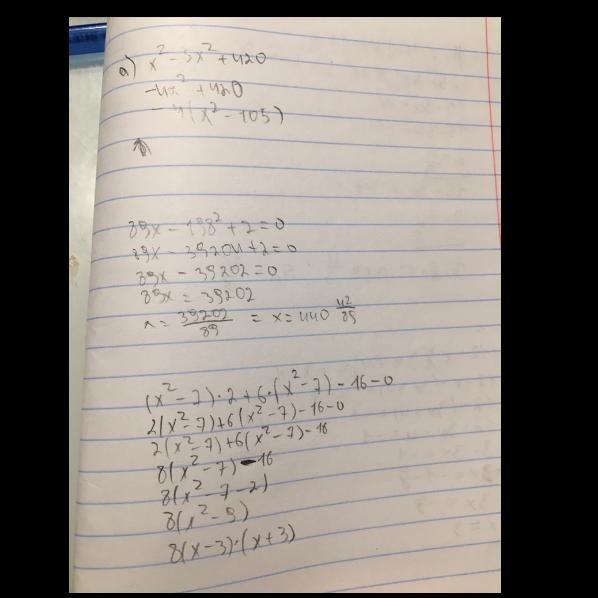 a) x² - 5x² + 420
-4x² + 420
-4(x² - 105)
89x - 198² + 2 = 0
89x - 39204 + 2 = 0
89x - 39202 = 0
89x = 39202
x = 39202/89 = x = 440 42/89
(x² - 7)·2 + 6·(x² - 7) - 16 - 0
2(x² - 7) + 6(x² - 7) - 16 - 0
2(x² - 7) + 6(x² - 7) - 16
8(x² - 7) - 16
8(x² - 7 - 2)
8(x² - 9)
8(x - 3)·(x + 3)